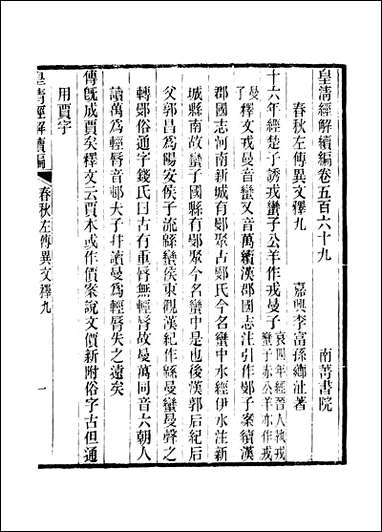 皇清經解續編卷五百六十九
南菁書院
春秋左傳異文釋九
嘉興李富孫薌沚著
十六年經楚子誘戎蠻子公羊作戎曼子
哀四年經晉人執戎
蠻子赤公羊亦作戎
曼
了
釋文戎曼音蠻又音萬續漢郡國志注引作鄤子案續漢
郡國志河南新城有鄤聚古鄤氏今名蠻中水經伊水注新
城縣南故蠻子國縣有鄤聚今名蠻中是也後漢郭后紀后
父郭昌爲陽安侯子流緜蠻侯東觀漢紀作緜曼蠻曼聲之
轉鄤俗通字錢氏曰古有重脣無輕脣故曼萬同音六朝人
讀萬爲輕脣音邨夫子幷讀曼爲輕脣失之遠矣
傳旣成賈矣釋文云賈本或作價案說文價新附俗字古但通
用賈字
皇淸經解續編
春秋左傳異文釋九
一